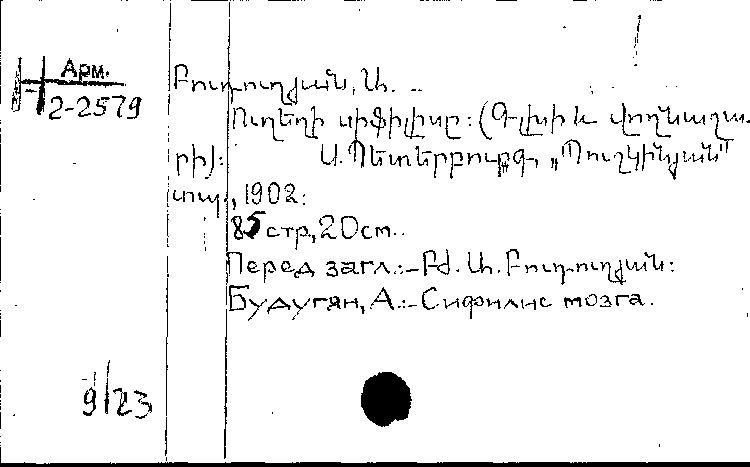 Арм.
2-2579
Բուդուղյան, Ա. ..
Ուղեղի սիֆիլիսը: (Գլխի և վողնաշա-
րի): Ս. Պետերբուրգ, „Պուշկինյան"
տպ., 1902:
85 стр, 20 см..
Перед загл.:-Բժ. Ա. Բուդուղյան:
Будугян, А.:-Сифилис мозга.
9/23